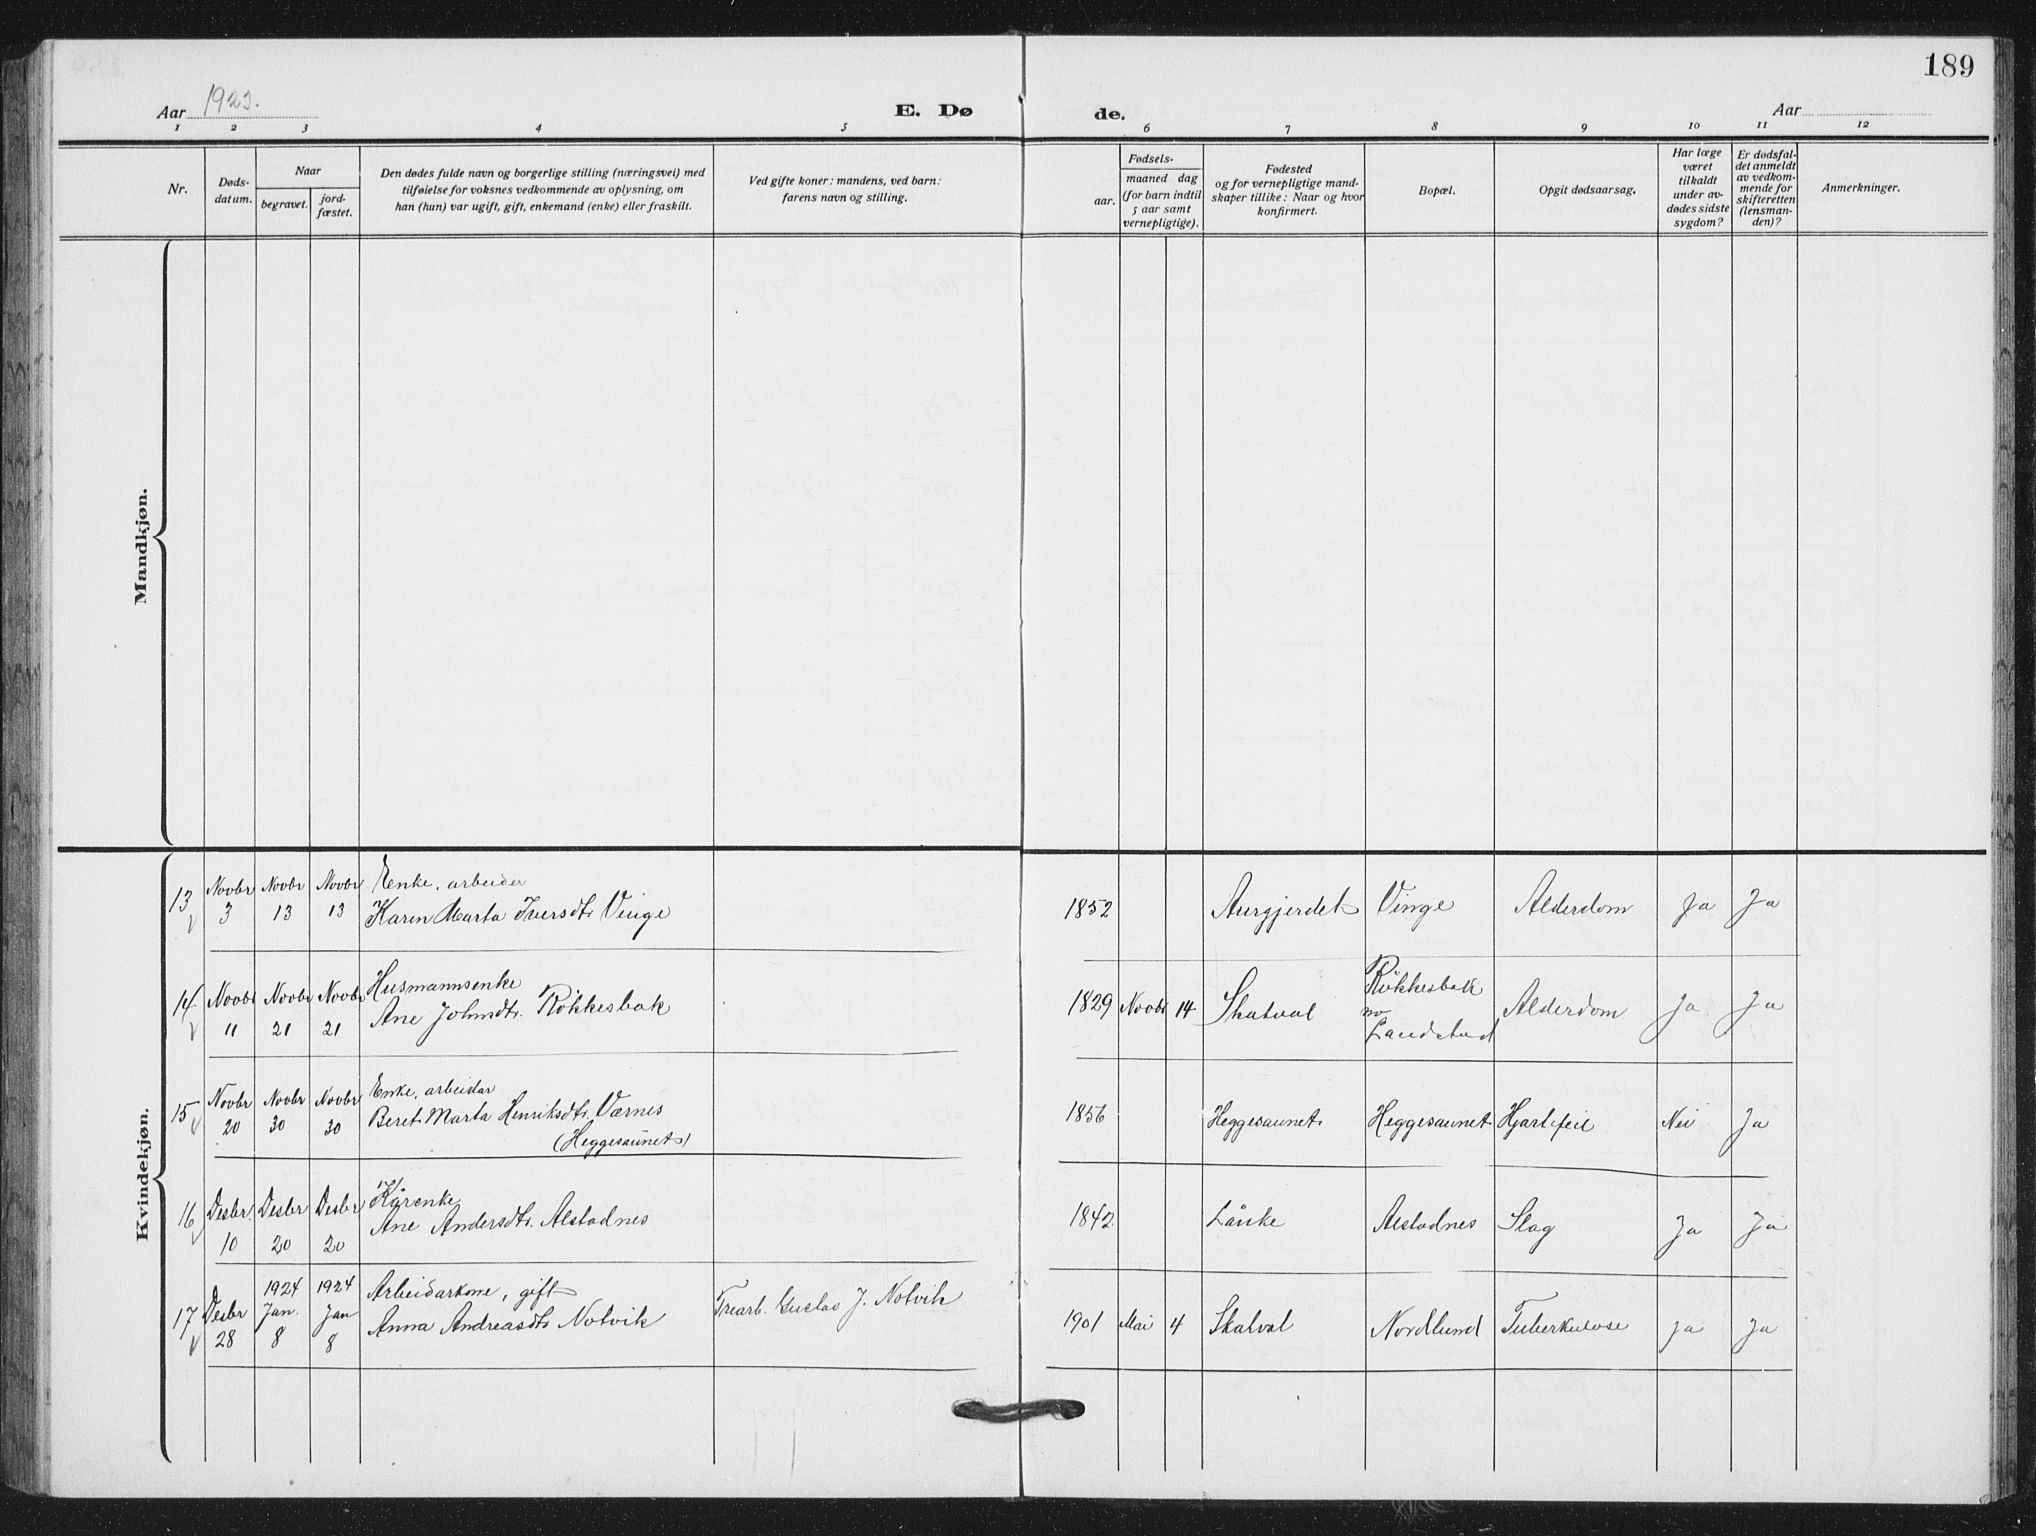 189
Aar 1923.
E. Dø
de.
Aar
1 2 3 4 5 6 7 8 9 10 11 12
Nr.
Døds-
datum.
Naar
begravet.
jord-
fæstet.
Den dødes fulde navn og borgerlige stilling (næringsvei) med
tilføielse for voksnes vedkommende av oplysning, om
han (hun) var ugift, gift, enkemand (enke) eller fraskilt.
Ved gifte koner: mandens, ved barn:
farens navn og stilling.
Fødsels-
aar.
maaned dag
(for barn indtil
5 aar samt
vernepligtige).
Fødested
og for vernepligtige mand-
skaper tillike: Naar og hvor
konfirmert.
Bopæl.
Opgit dødsaarsag.
Har læge
været
tilkaldt
under av-
dødes sidste
sygdom?
Er dødsfal-
det anmeldt
av vedkom-
mende for
skifteretten
(lensman-
den)?
Anmerkninger.
Mandkjøn.
Kvindekjøn.
13 Novbr 3 Novbr 13 Novbr 13
Enke, arbeider
Karen Marta Iversdtr Vinge
1852 Aurgjerdet Vinge Alderdom Ja Ja
14 Novbr 11 Novbr 21 Novbr 21
Husmannsenke
Ane Johnsdtr. Røkkesbak
1829 Novbr 14 Skatval
Røkkesbak
Alderdom Ja Ja
15 Novbr 20 Novbr 30 Novbr 30
Enke, arbeidar
Beret Marta Henriksdtr. Værnes
(Heggesaunet)
1856 Heggesaunet Heggesaunet Hjartefeil Nei Ja
16 Desbr. 10 Desbr 20 Desbr 20
Kårenke
Ane Andersdtr. Alstadnes
1842 Lånke Alstadnes Slag Ja Ja
17 Desbr 28 1924 Jan. 8 1924 Jan 8
Arbeidarkone, gift
Anna Andreasdtr Notvik
Trearb. Gustav J. Notvik
1901 Mai 4 Skatval Nordlund Tuberkulose Ja Ja